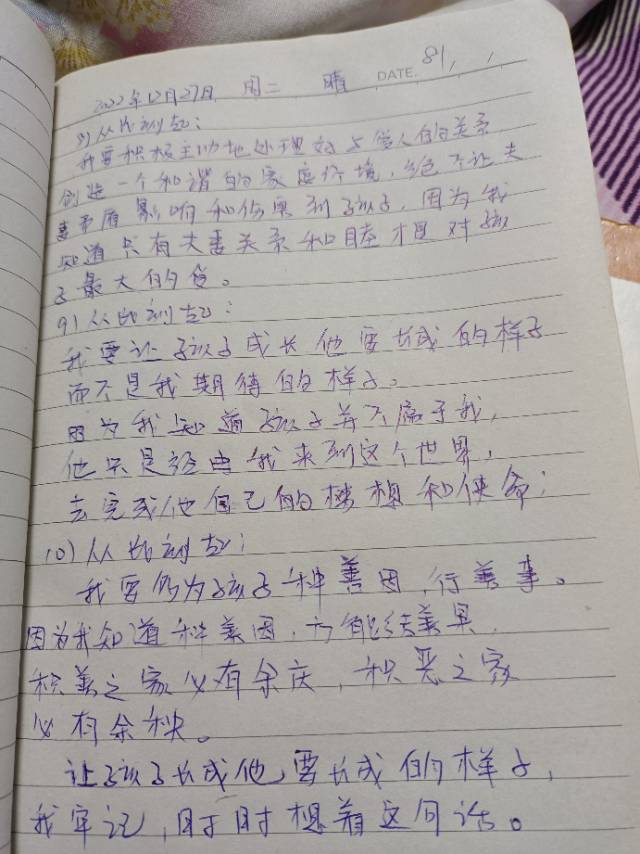 DATE. 81, ,
2022年12月27日 周二 晴
8)从此刻起:
我要积极主动地处理好与爱人的关系
创造一个和谐的家庭环境,绝不让夫
妻矛盾影响和伤害到孩子,因为我
知道只有夫妻关系和睦才是对孩
子最大的爱。
9)从此刻起:
我要让孩子成长他要长成的样子
而不是我期待的样子。
因为我知道孩子并不属于我,
他只是经由我来到这个世界,
去完成他自己的梦想和使命;
10)从此刻起:
我要多为孩子种善因,行善事。
因为我知道种善因,方能结善果,
积善之家必有余庆,积恶之家
必有余殃。
让孩子长成他要长成的样子,
我牢记,时时想着这句话。